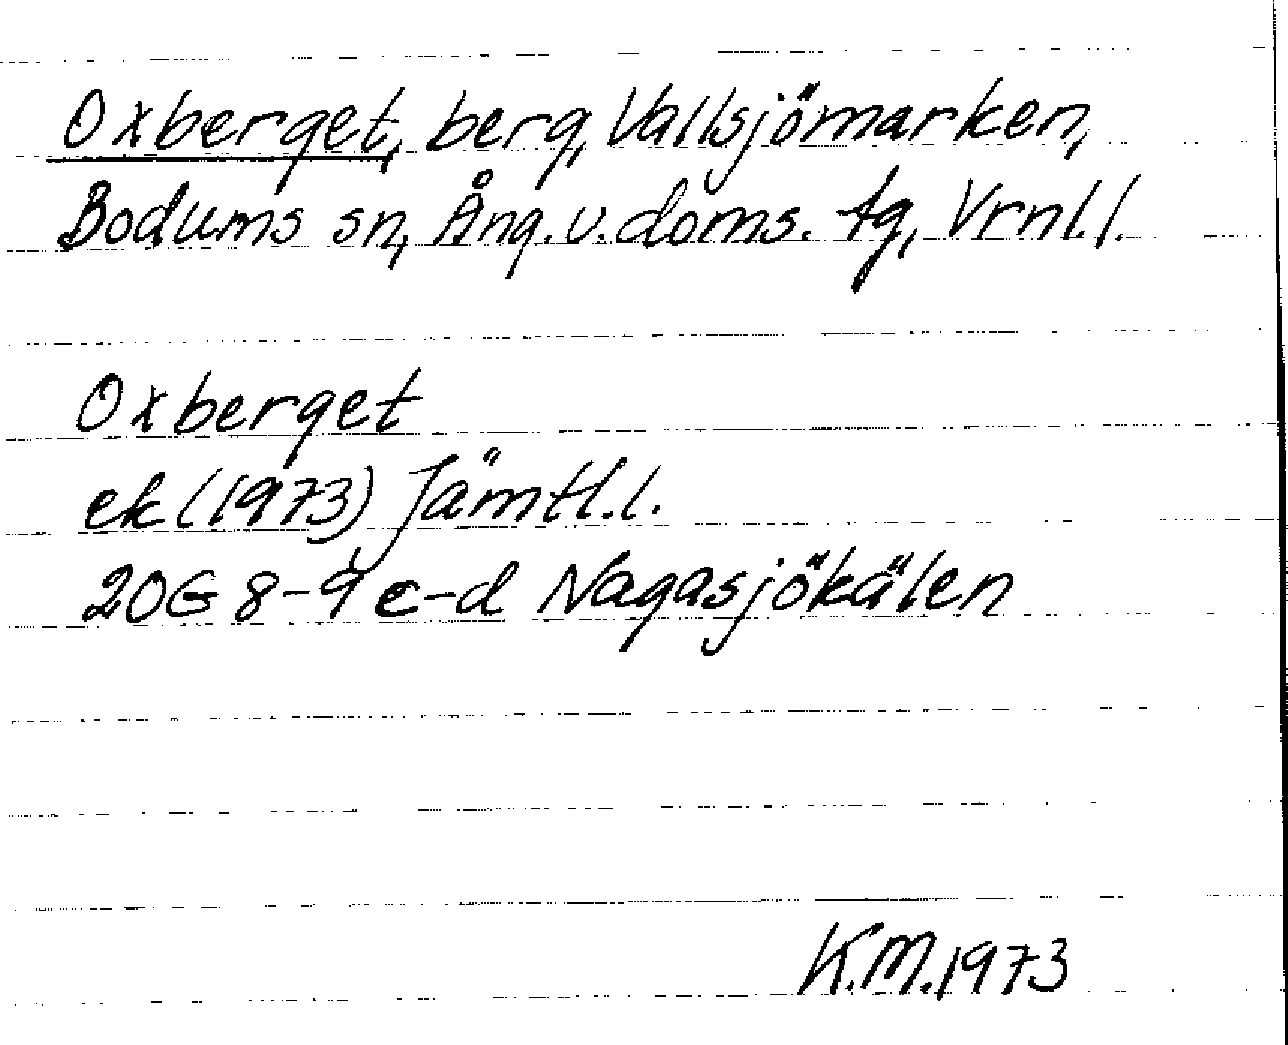 Oxberget, berg, Vallsjömarken,
Bodums sn, Ång. v. doms. tg, Vrnl. l.
Oxberget
ek (1973) Jämtl. l.
20G 8-9 c-d Nagasjökälen
K.M. 1973